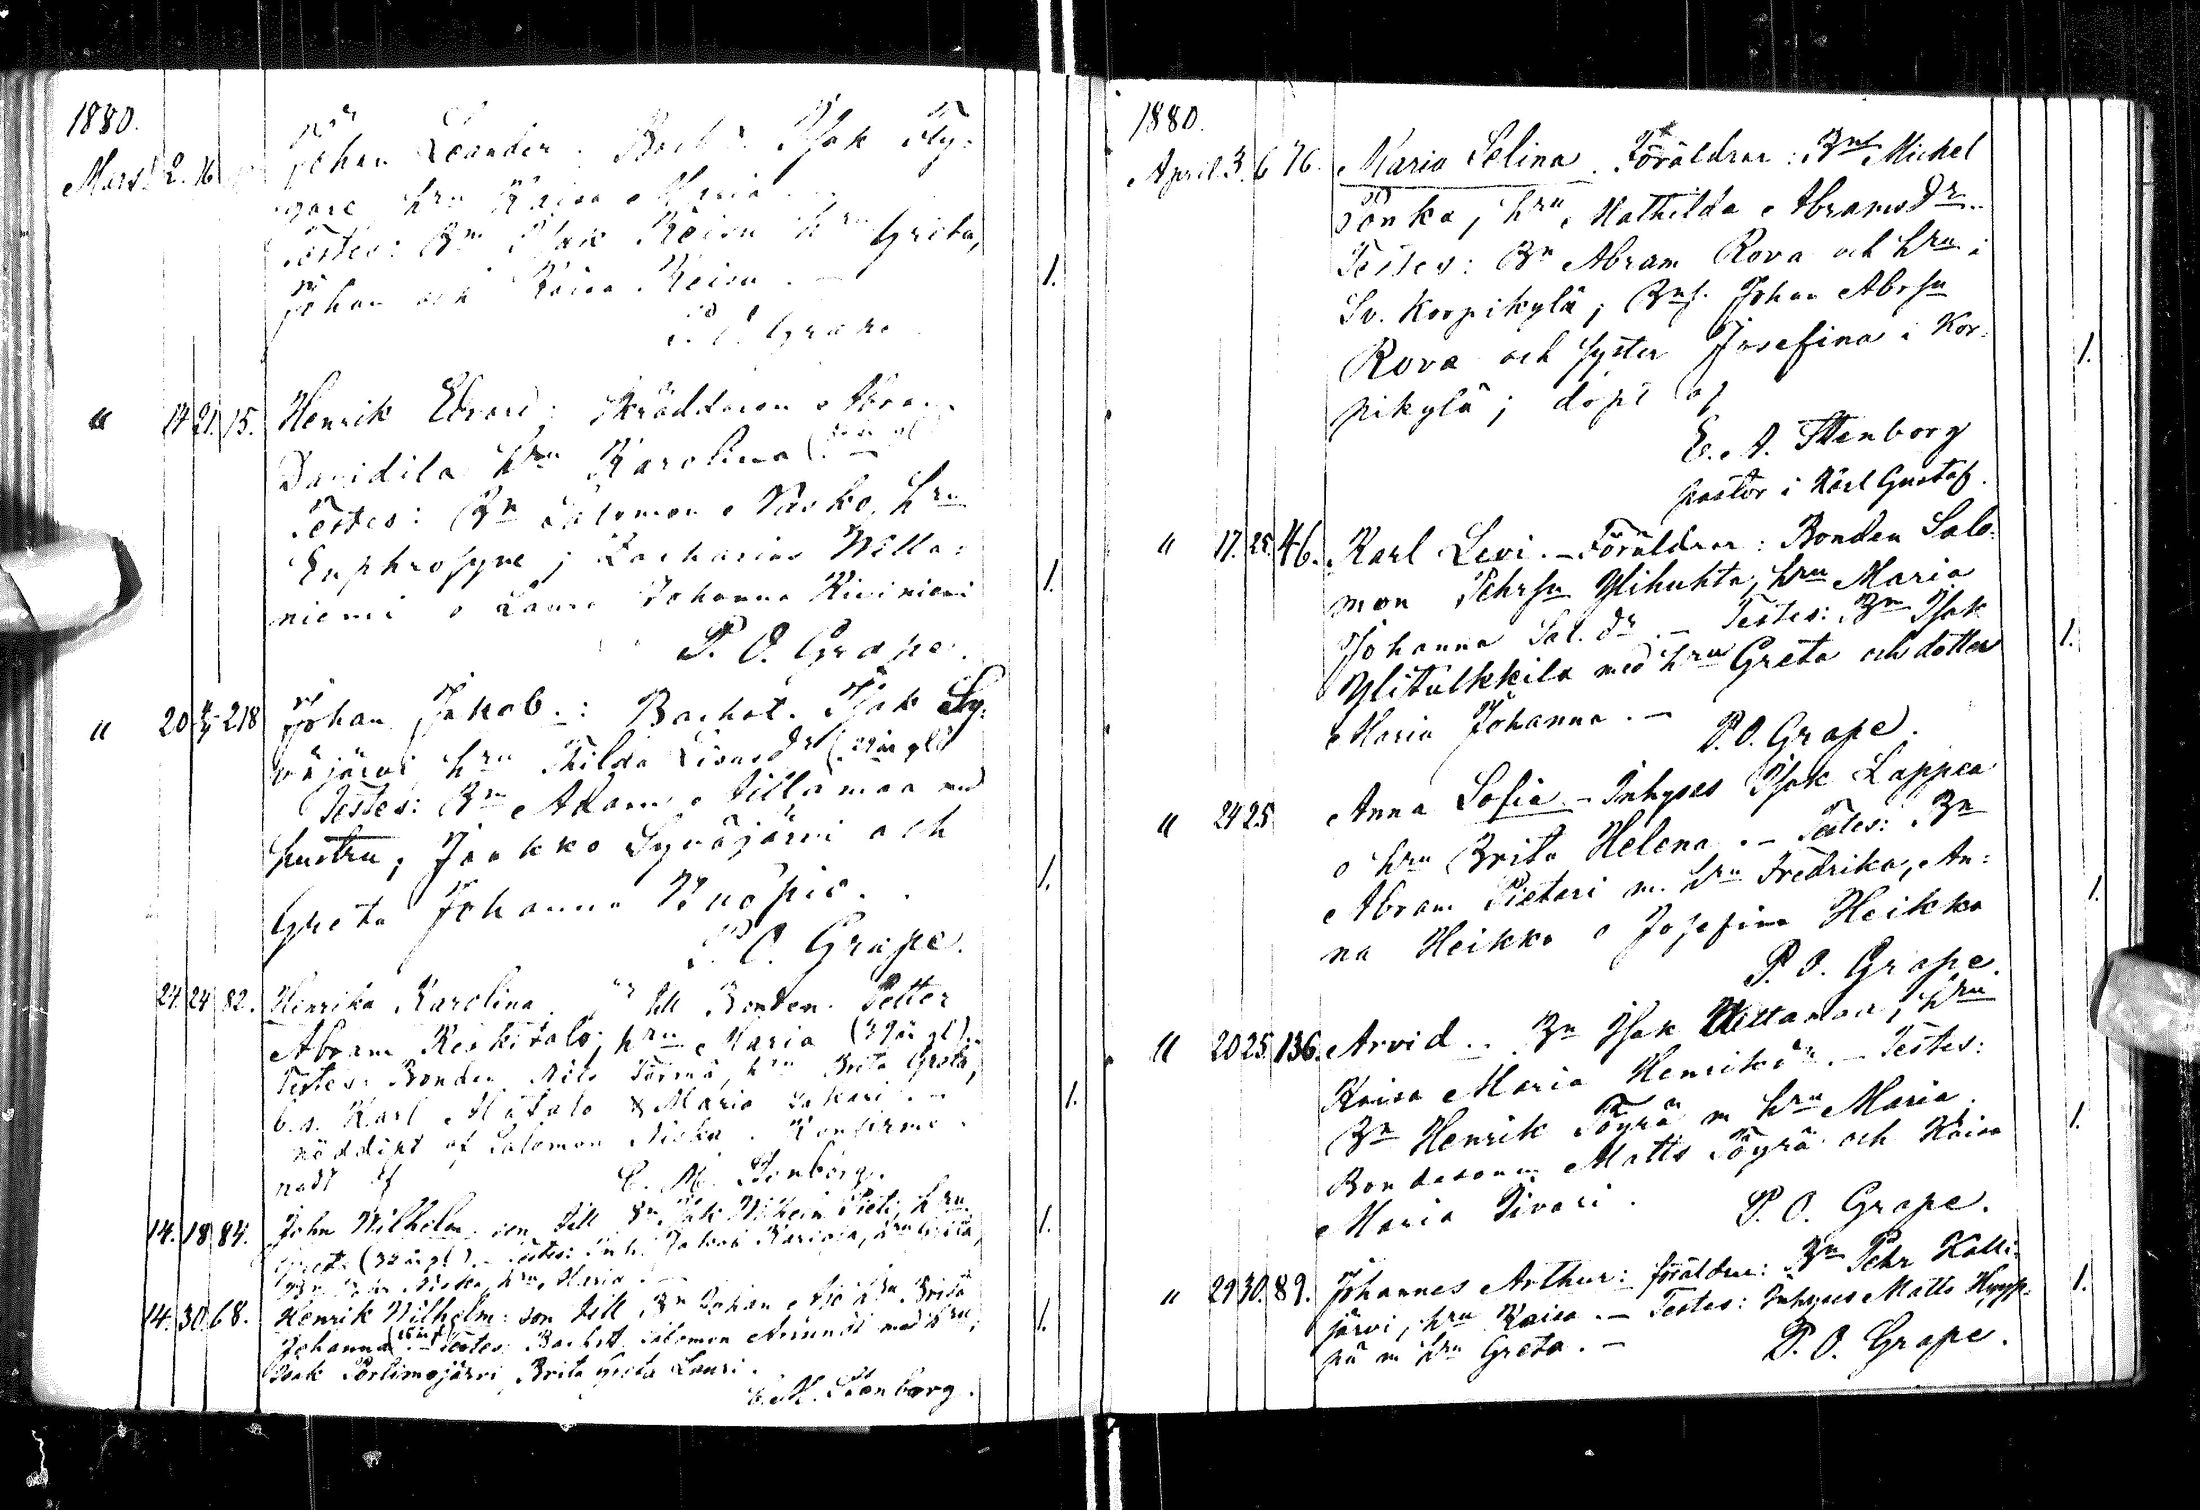 1880.
Mars 2. 16 Johan Leander. Isak Fly-
gare hru Kaisa Maria
Testes: Bn Isak Keisu hru Greta,
Johan och Kaisa Keisu. — 1.
P. O. Grape
" 14 21. 15. Henrik Edvard; Skräddaren Abram
Davidila hru Karolina
Testes: Bn Salomon Niska, hru
Euphrosyne; Zacharias Willa-
niemi o Johanna Kiviniemi 1.
P. O. Grape.
" 20 218 Johan Jakob.: Isak Sy-
väjärvi hru Thilda dr (29 år gl)
Testes: Bn Adam Aillomaa med
hustru; Jaakko Syväjärvi och
Greta Johanna Kuopio. 1.
P. O. Grape.
24. 24 82. Henrika Karolina. dr till Bonden Petter
Abram Keskitalo; hru Maria (39 år gl).
Testes: Bonden Nils Törmä, hru Brita Greta,
b.s. Karl Mätalo & Maria 1.
nöddöpt af Salomon Niska. Konfirme-
radt af C. M. Stenborg.
14. 18 84. John Wilhelm son till Bn Isak Wilhelm Pieti, hru 1.
Greta (32 år gl). — Testes: Inh. Jakob
Niska, hru Maria.
14. 30. 68. Henrik Wilhelm: son till Bn Johan hru Brita 1.
Johanna — Testes: Salomon med hru,
Isak Portimojärvi, Brita Greta Lauri.
C. M. Stenborg.
1880.
April 3. 6 76. Maria Selina. Föräldrar: Bns Michel
hru Mathilda Abramsdr.
Testes: Bn Abram Rova och hru i
Sv. Korpikylä; Bns. Johan Abrsn
Rova och syster Josefina i Kor- 1.
pikylä; döpt af
Stenborg
pastor i Karl Gustaf.
" 17. 25. 46. Karl Levi. — Föräldrar: Bonden Salo-
mon Pehrsn Ylihuhta, hru Maria
Johanna Sal. dr. — Testes: Bn Isak 1.
Ylitulkkila med hru Greta och dotter
Maria Johanna. —
P. O. Grape.
" 24 25 Anna Sofia — Inhyses Isak Lappea
o hru Brita Helena. — Testes: Bn
Abram Pietari m. hru Fredrika, An- 1.
na Heikka o Josefina Heikka
P. O. Grape.
" 20 25. 136. Arvid. Bn Isak hru
Kaisa Maria Henriksdr. — Testes:
Bn Henrik Töyrä m hru Maria. 1.
Bondeson Matts Töyrä och Kaisa
Maria
P. O. Grape.
" 29 30. 89. Johannes Arthur: föräldrar: Bn Pehr Kalli- 1.
järvi, hru Kaisa. — Testes: Inhyses Matts
m hru Greta. —
P. O. Grape.